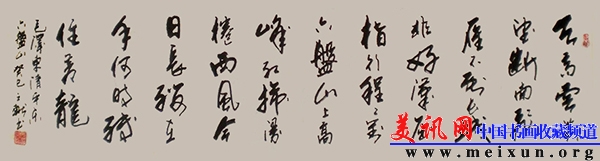 天高雲淡
望断南飛
雁不到长城
非好漢屈
指行程二万
六盤山上高
峰红旗漫
捲西風今
日長缨在
手何时缚
住苍龍
毛澤東清平乐
六盤山癸巳
书
美讯网 中国书画收藏频道
www.meixun.org